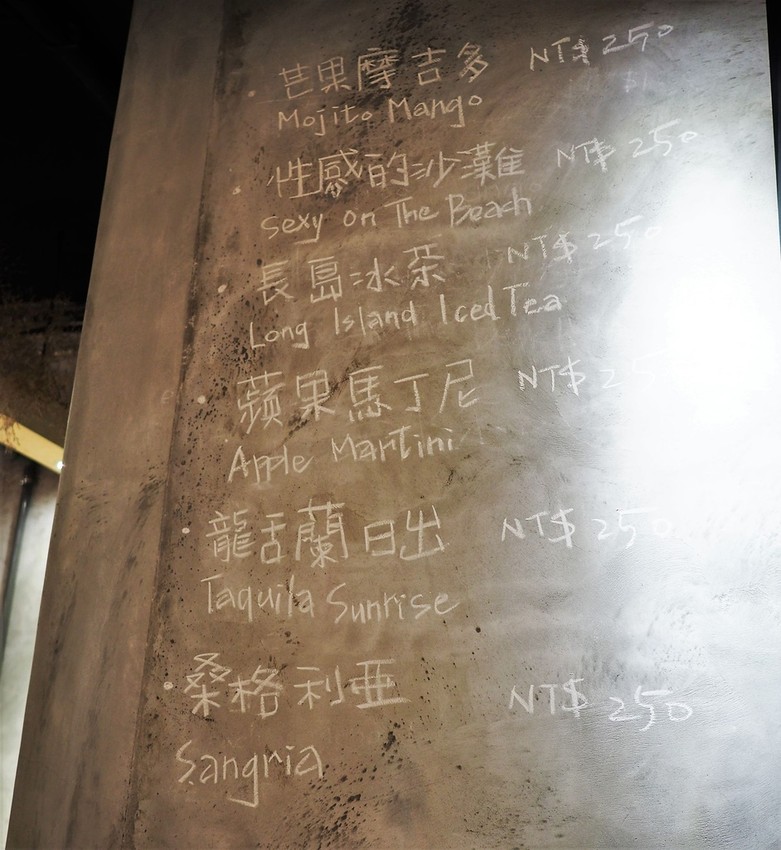 芒果摩吉多 NT$250
Mojito Mango
性感的沙灘 NT$250
Sexy on The Beach
長島冰茶 NT$250
Long Island Iced Tea
蘋果馬丁尼 NT$25
Apple Martini
龍舌蘭日出 NT$250
Taquila Sunrise
桑格利亞 NT$250
Sangria